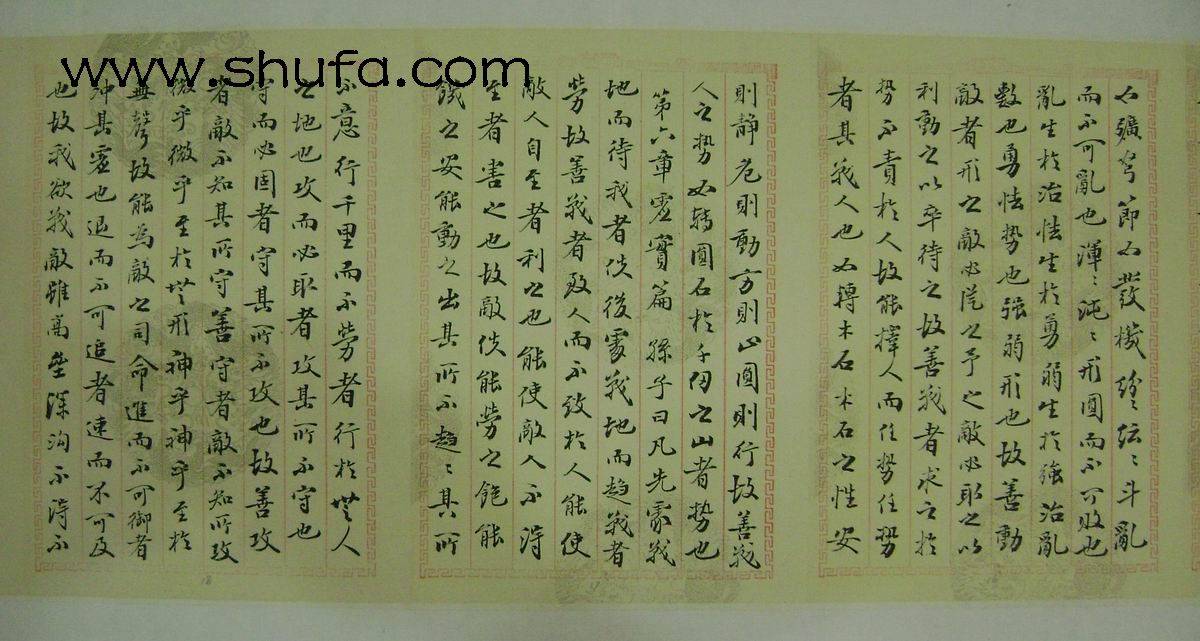 www.shufa.com
如彍弩節如發機紛〻紜〻斗亂
而不可亂也渾〻沌〻形圓而不可敗也
亂生於治怯生於勇弱生於強治亂
數也勇怯勢也强弱形也故善動
敵者形之敵必從之予之敵必取之以
利動之以卒待之故善戰者求之於
勢不責於人故能擇人而任勢任勢
者其戰人也如轉木石木石之性安
則靜危則動方則止圓則行故善戰
人之勢如轉圓石於千仞之山者勢也
第六章虛實篇 孫子曰凡先處戰
地而待戰者佚後處戰地而趨戰者
勞故善戰者致人而不致於人能使
敵人自至者利之也能使敵人不得
至者害之也故敵佚能勞之飽能
饑之安能動之出其所不趨〻其所
不意行千里而不勞者行於無人
之地也攻而必取者攻其所不守也
守而必固者守其所不攻也故善攻
者敵不知其所守善守者敵不知所攻
微乎微乎至於無形神乎神乎至於
無聲故能為敵之司命進而不可御者
沖其虛也退而不可追者速而不可及
也故我欲戰敵雖高壘深溝不得不
18